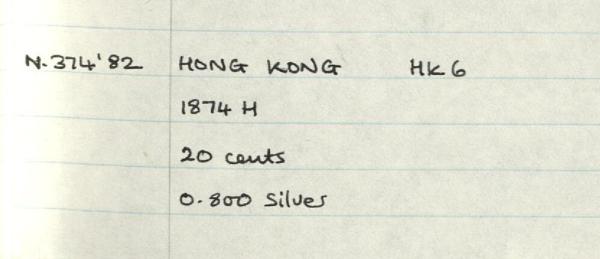 N.374'82 HONG KONG HK 6
1874 H
20 cents
0.800 Silver